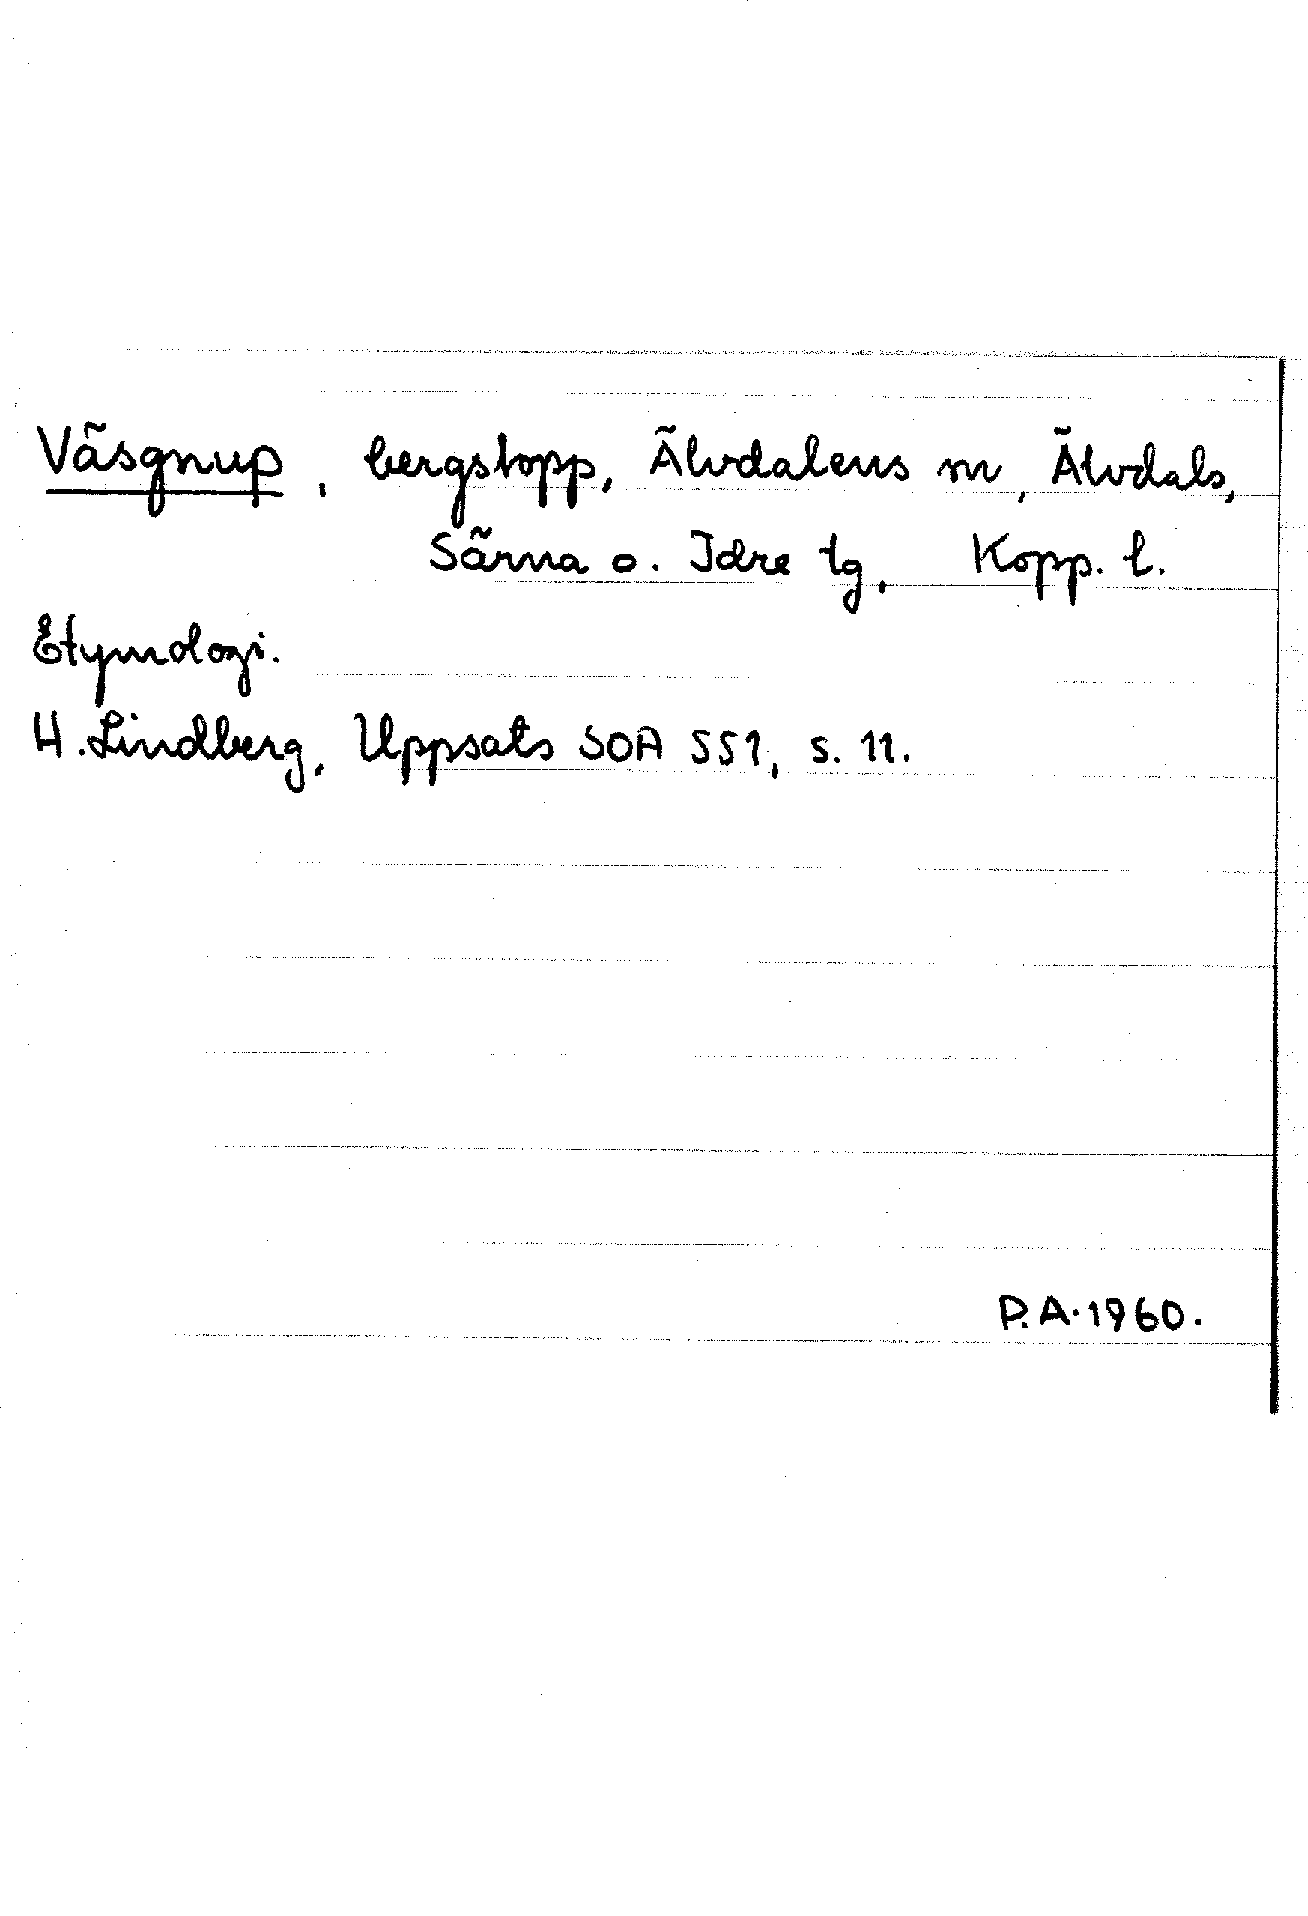 Väsgnup, bergstopp, Älvdalens m, Älvdals,
Särna o. Idre tg, Kopp. l.
Etymologi.
H. Lindberg, Uppsats SOA 551, s. 11.
P.A. 1960.